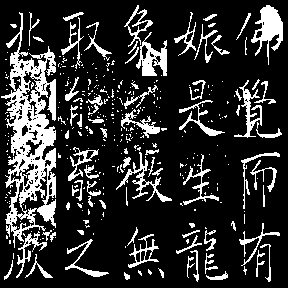 佛覺而有
娠是生龍
象之徵無
取熊羆之
兆誕彌厥